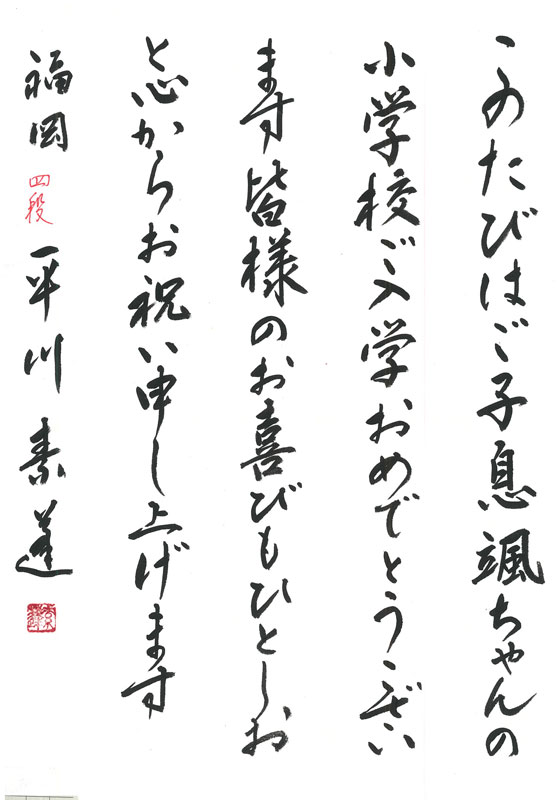 このたびはご子息颯ちゃんの
小学校ご入学おめでとうござい
ます皆様のお喜びもひとしお
と心からお祝い申し上げます
福岡 四段 平川素蓬